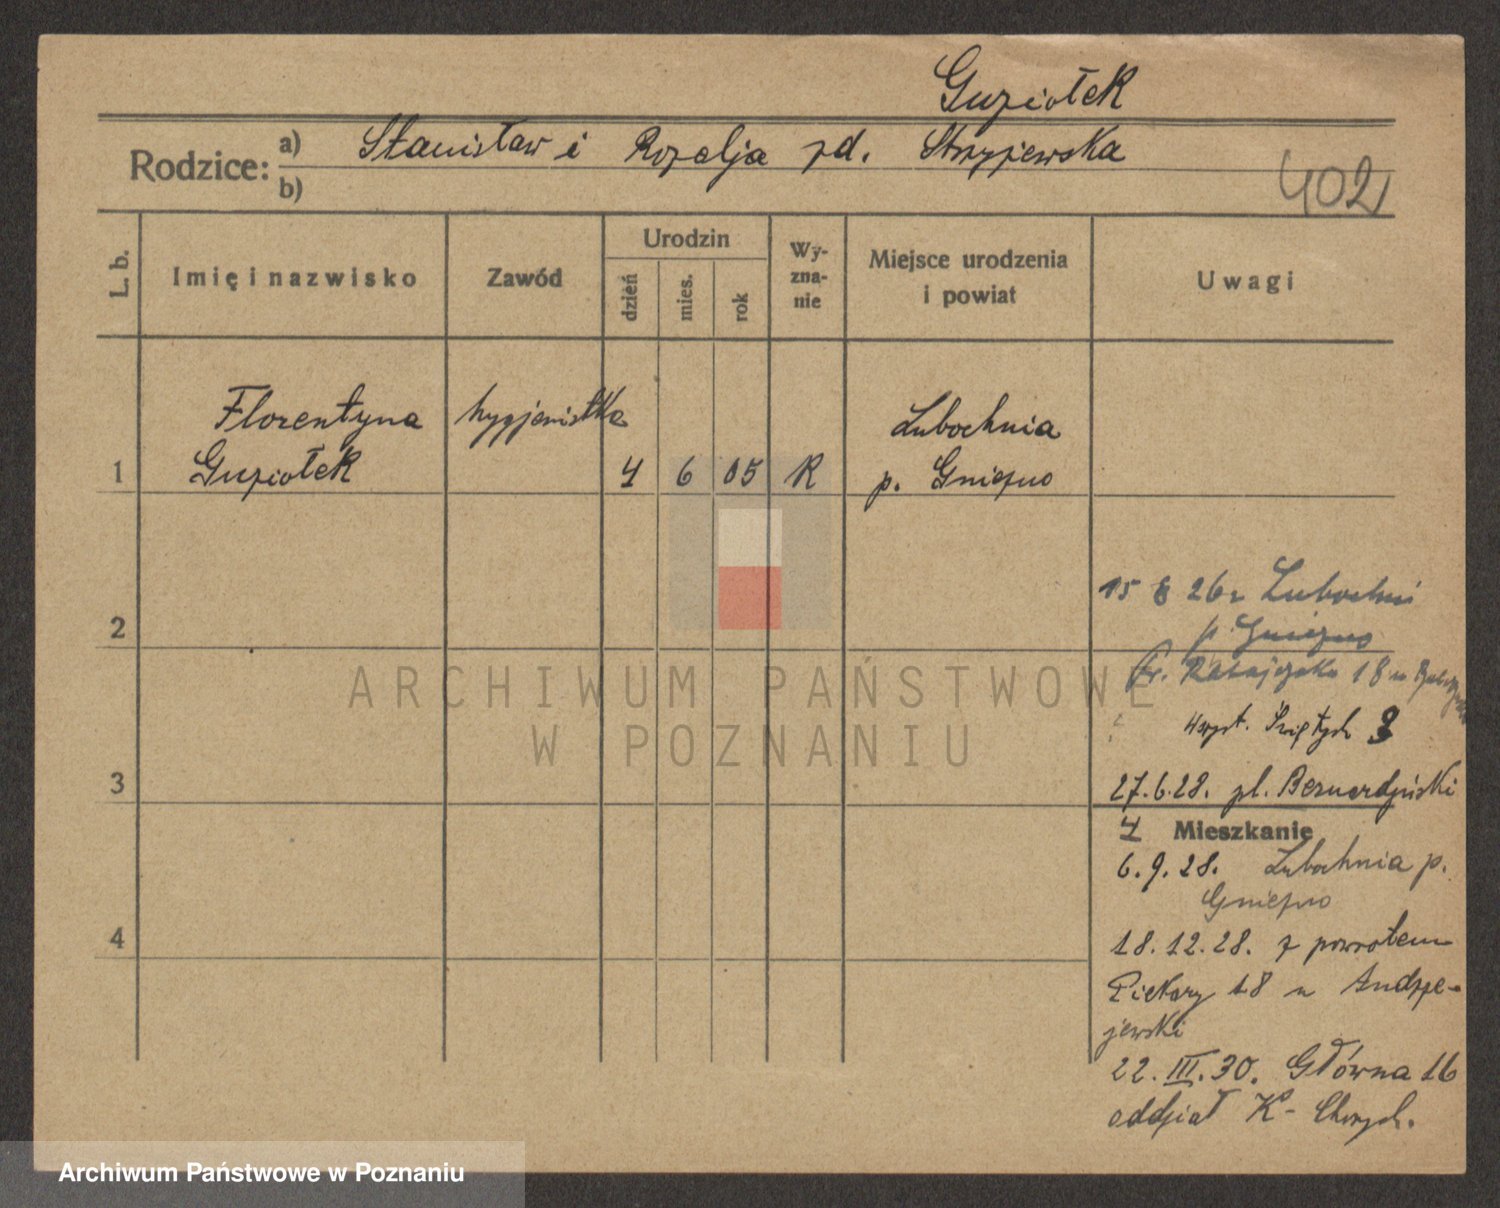 Guziołek
Rodzice: a) Stanisław i Rozalja zd. Strzyżewska
b)
402
L. b. Imię i nazwisko Zawód Urodzin dzień mies. rok Wyznanie Miejsce urodzenia i powiat Uwagi
Florentyna hygjenistka Lubochnia
1 Guziołek 4 6 05 R p. Gniezno
15 8 26 z Lubochni
2 p. Gniezno
Fr. Ratajczaka 18 u
Wszyst. Świętych 3
3 27.6.28. pl. Bernardyński
4 Mieszkanie
6.9.28. Lubochnia p.
Gniezno
4 18.12.28. z powrotem
Piekary 18 u Andrze-
jewski
22.III.30. Główna 16
oddział K- Chorych.
ARCHIWUM PAŃSTWOWE
W POZNANIU
Archiwum Państwowe w Poznaniu